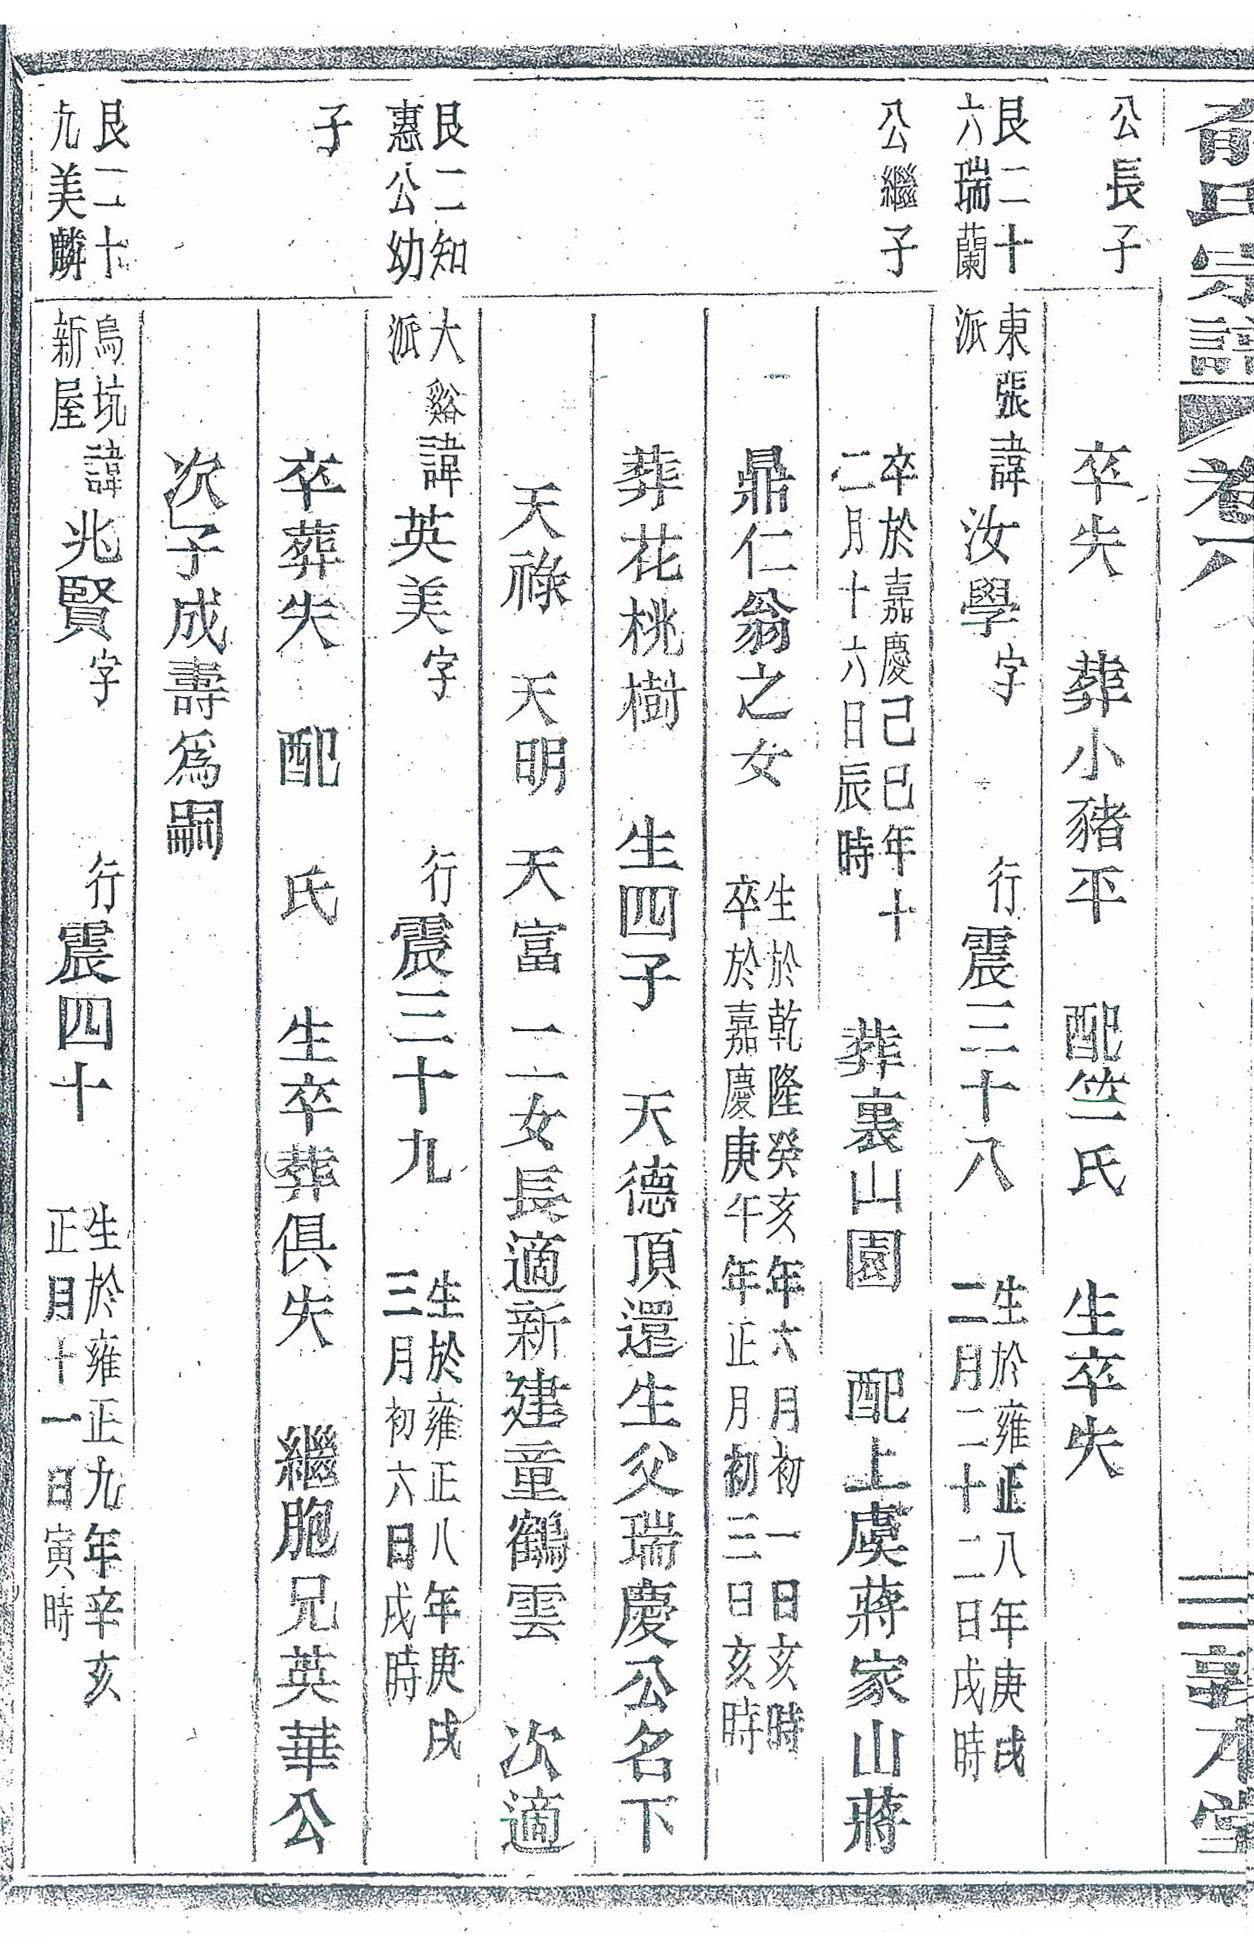 俞氏宗譜 卷六 三 敦本堂
公長子
卒失 葬小豬平 配竺氏 生卒失
艮二十
六瑞蘭
東張
派
諱汝學字 行震三十八
生於雍正八年庚戌
二月二十二日戌時
公繼子
卒於嘉慶己巳年十
二月十六日辰時
葬裏山園 配上虞蔣家山蔣
鼎仁翁之女
生於乾隆癸亥年六月初一日亥時
卒於嘉慶庚午年正月初三日亥時
葬花桃樹 生四子 天德頂還生父瑞慶公名下
天祿 天明 天富 二女長適新建童鶴雲 次適
艮二知
惠公幼
大谿
派
諱英美字 行震三十九
生於雍正八年庚戌
三月初六日戌時
子
卒葬失 配 氏 生卒葬俱失 繼胞兄英華公
次子成壽為嗣
艮二十
九美麟
烏坑
新屋
諱兆賢字 行震四十
生於雍正九年辛亥
正月十一日寅時